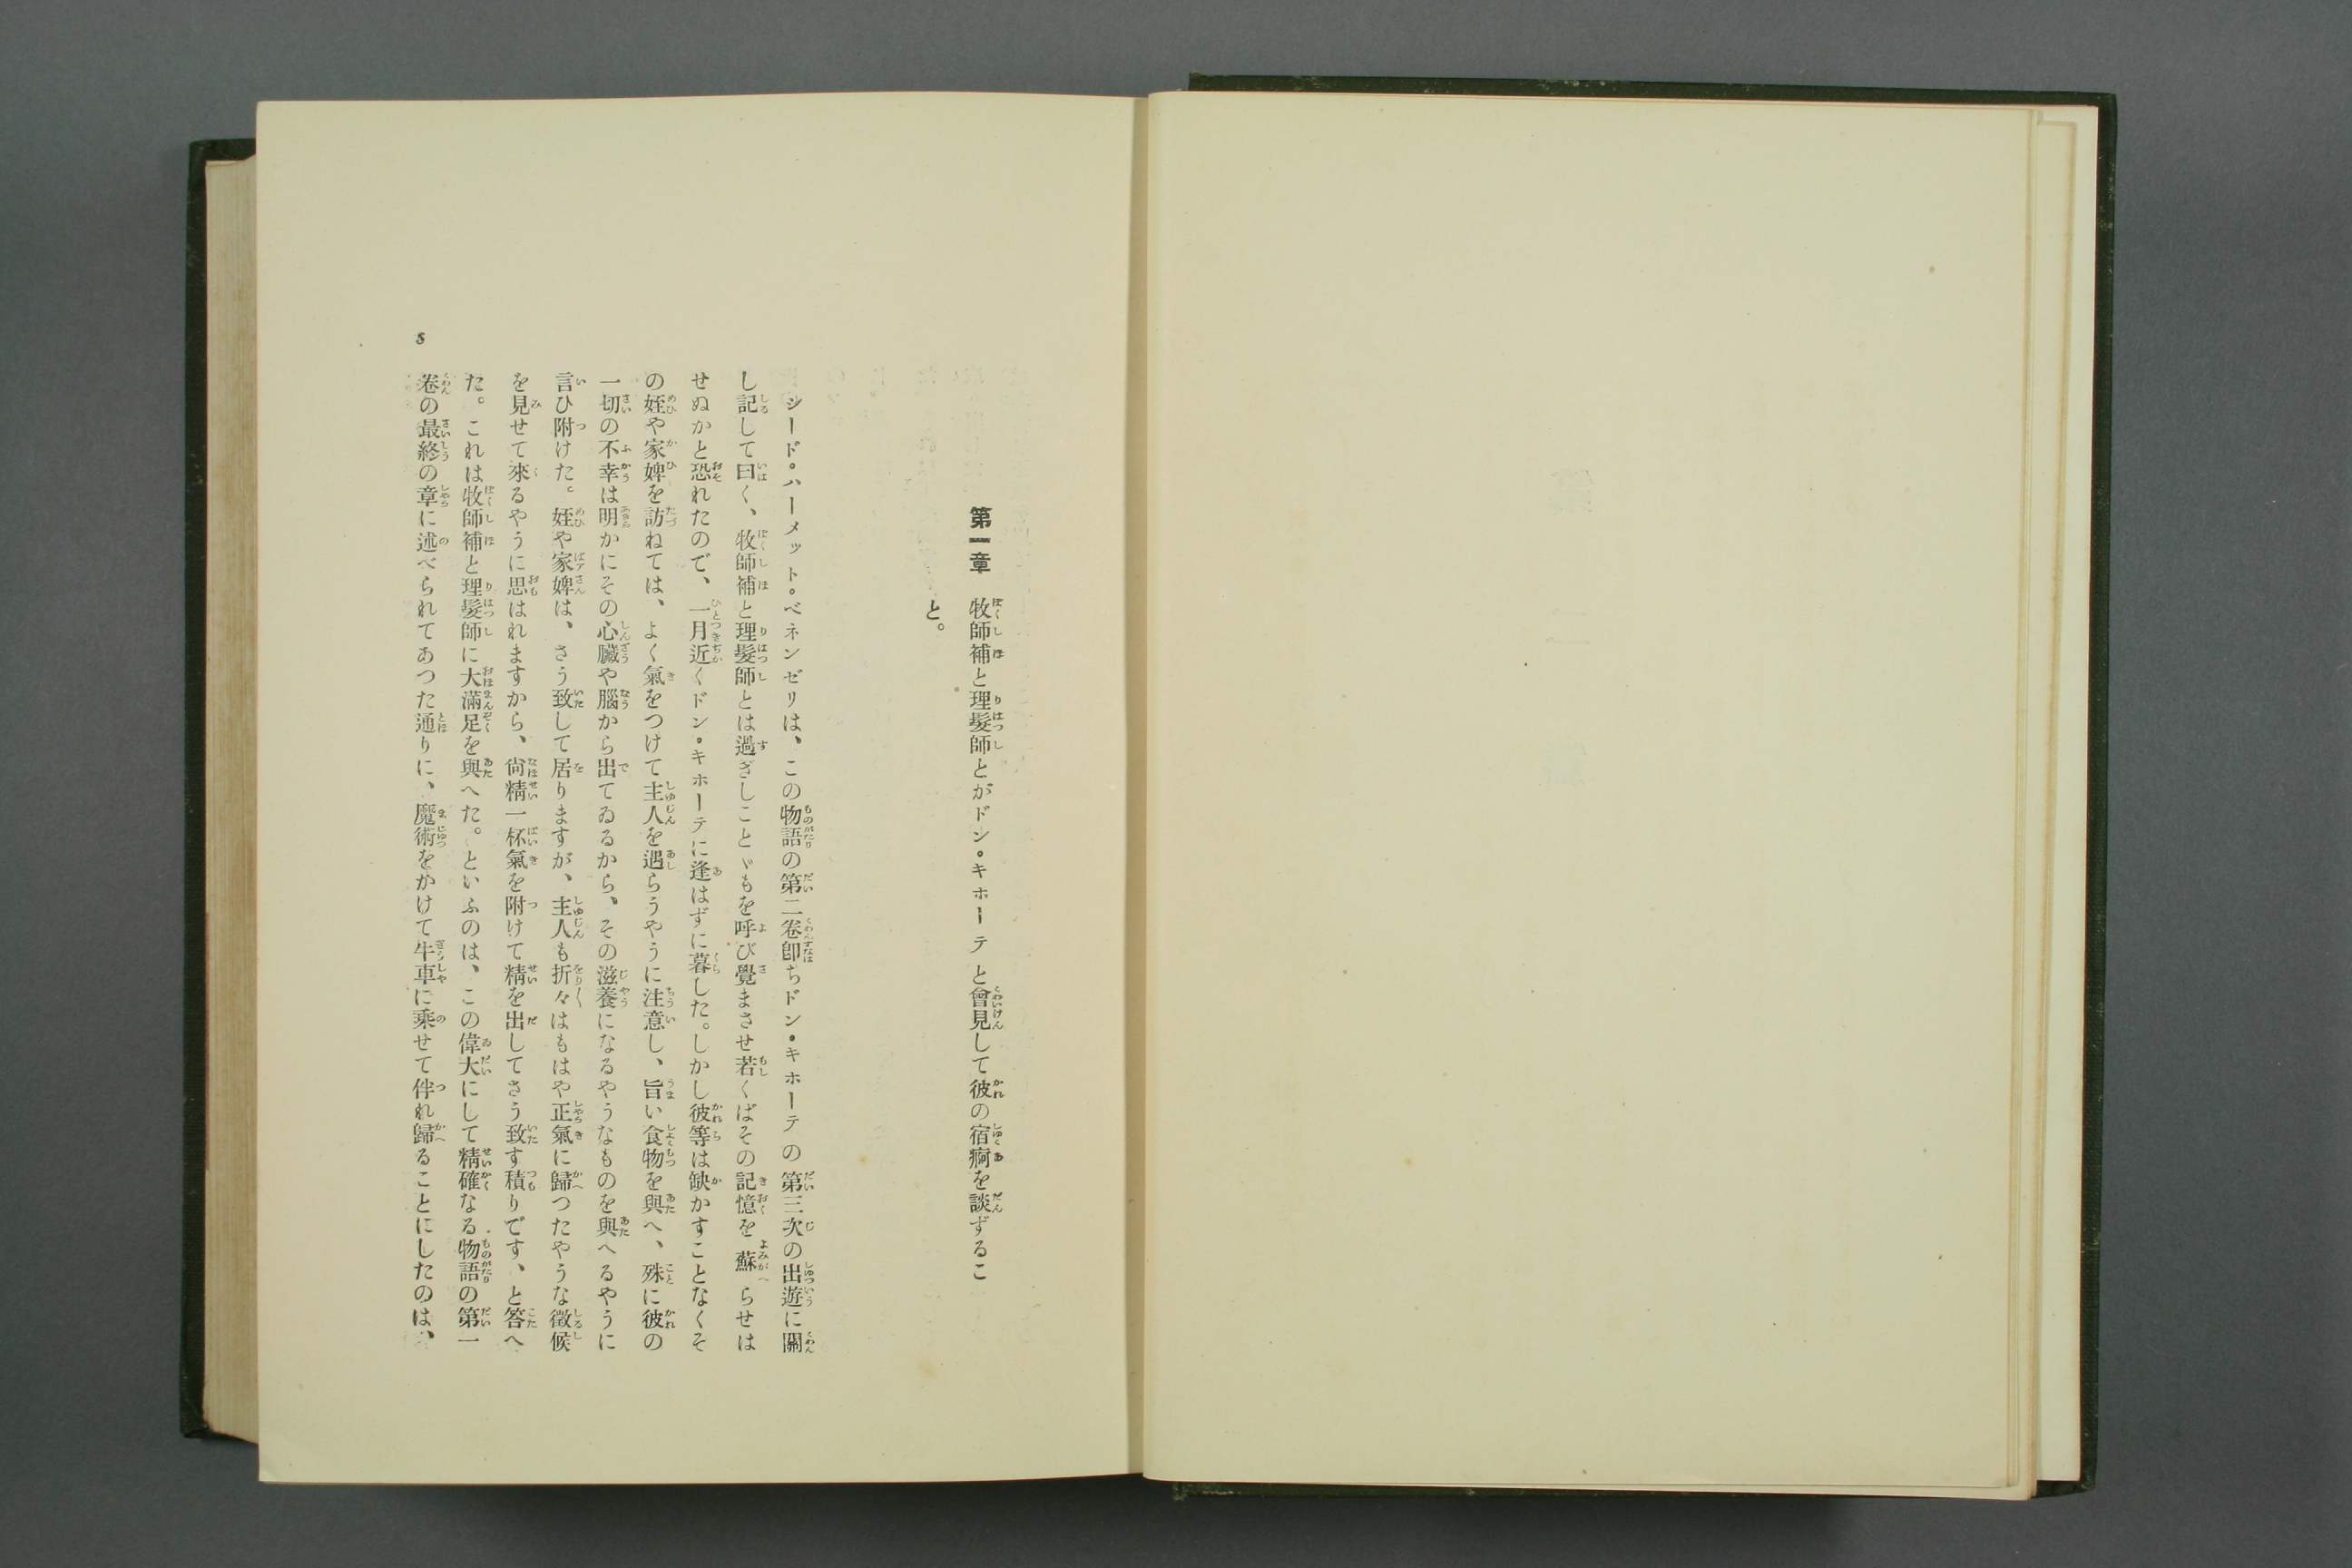 第一章 牧師補と理髮師とがドン・キホーテと會見して彼の宿痾を談ずるこ
と。
シード・ハーメット・ベネンゼリは、この物語の第二卷卽ちドン・キホーテの第三次の出遊に關
し記して曰く、牧師補と理髮師とは過ぎしことゞもを呼び覺まさせ若くばその記憶を蘇らせは
せぬかと恐れたので、一月近くドン・キホーテに逢はずに暮した。しかし彼等は缺かすことなくそ
の姪や家婢を訪ねては、よく氣をつけて主人を遇らうやうに注意し、旨い食物を與へ、殊に彼の
一切の不幸は明かにその心臟や腦から出てゐるから、その滋養になるやうなものを與へるやうに
言ひ附けた。姪や家婢は、さう致して居りますが、主人も折々はもはや正氣に歸つたやうな徵候
を見せて來るやうに思はれますから、尙精一杯氣を附けて精を出してさう致す積りです、と答へ
た。これは牧師補と理髮師に大滿足を與へた。といふのは、この偉大にして精確なる物語の第一
卷の最終の章に述べられてあつた通りに、魔術をかけて牛車に乘せて伴れ歸ることにしたのは、